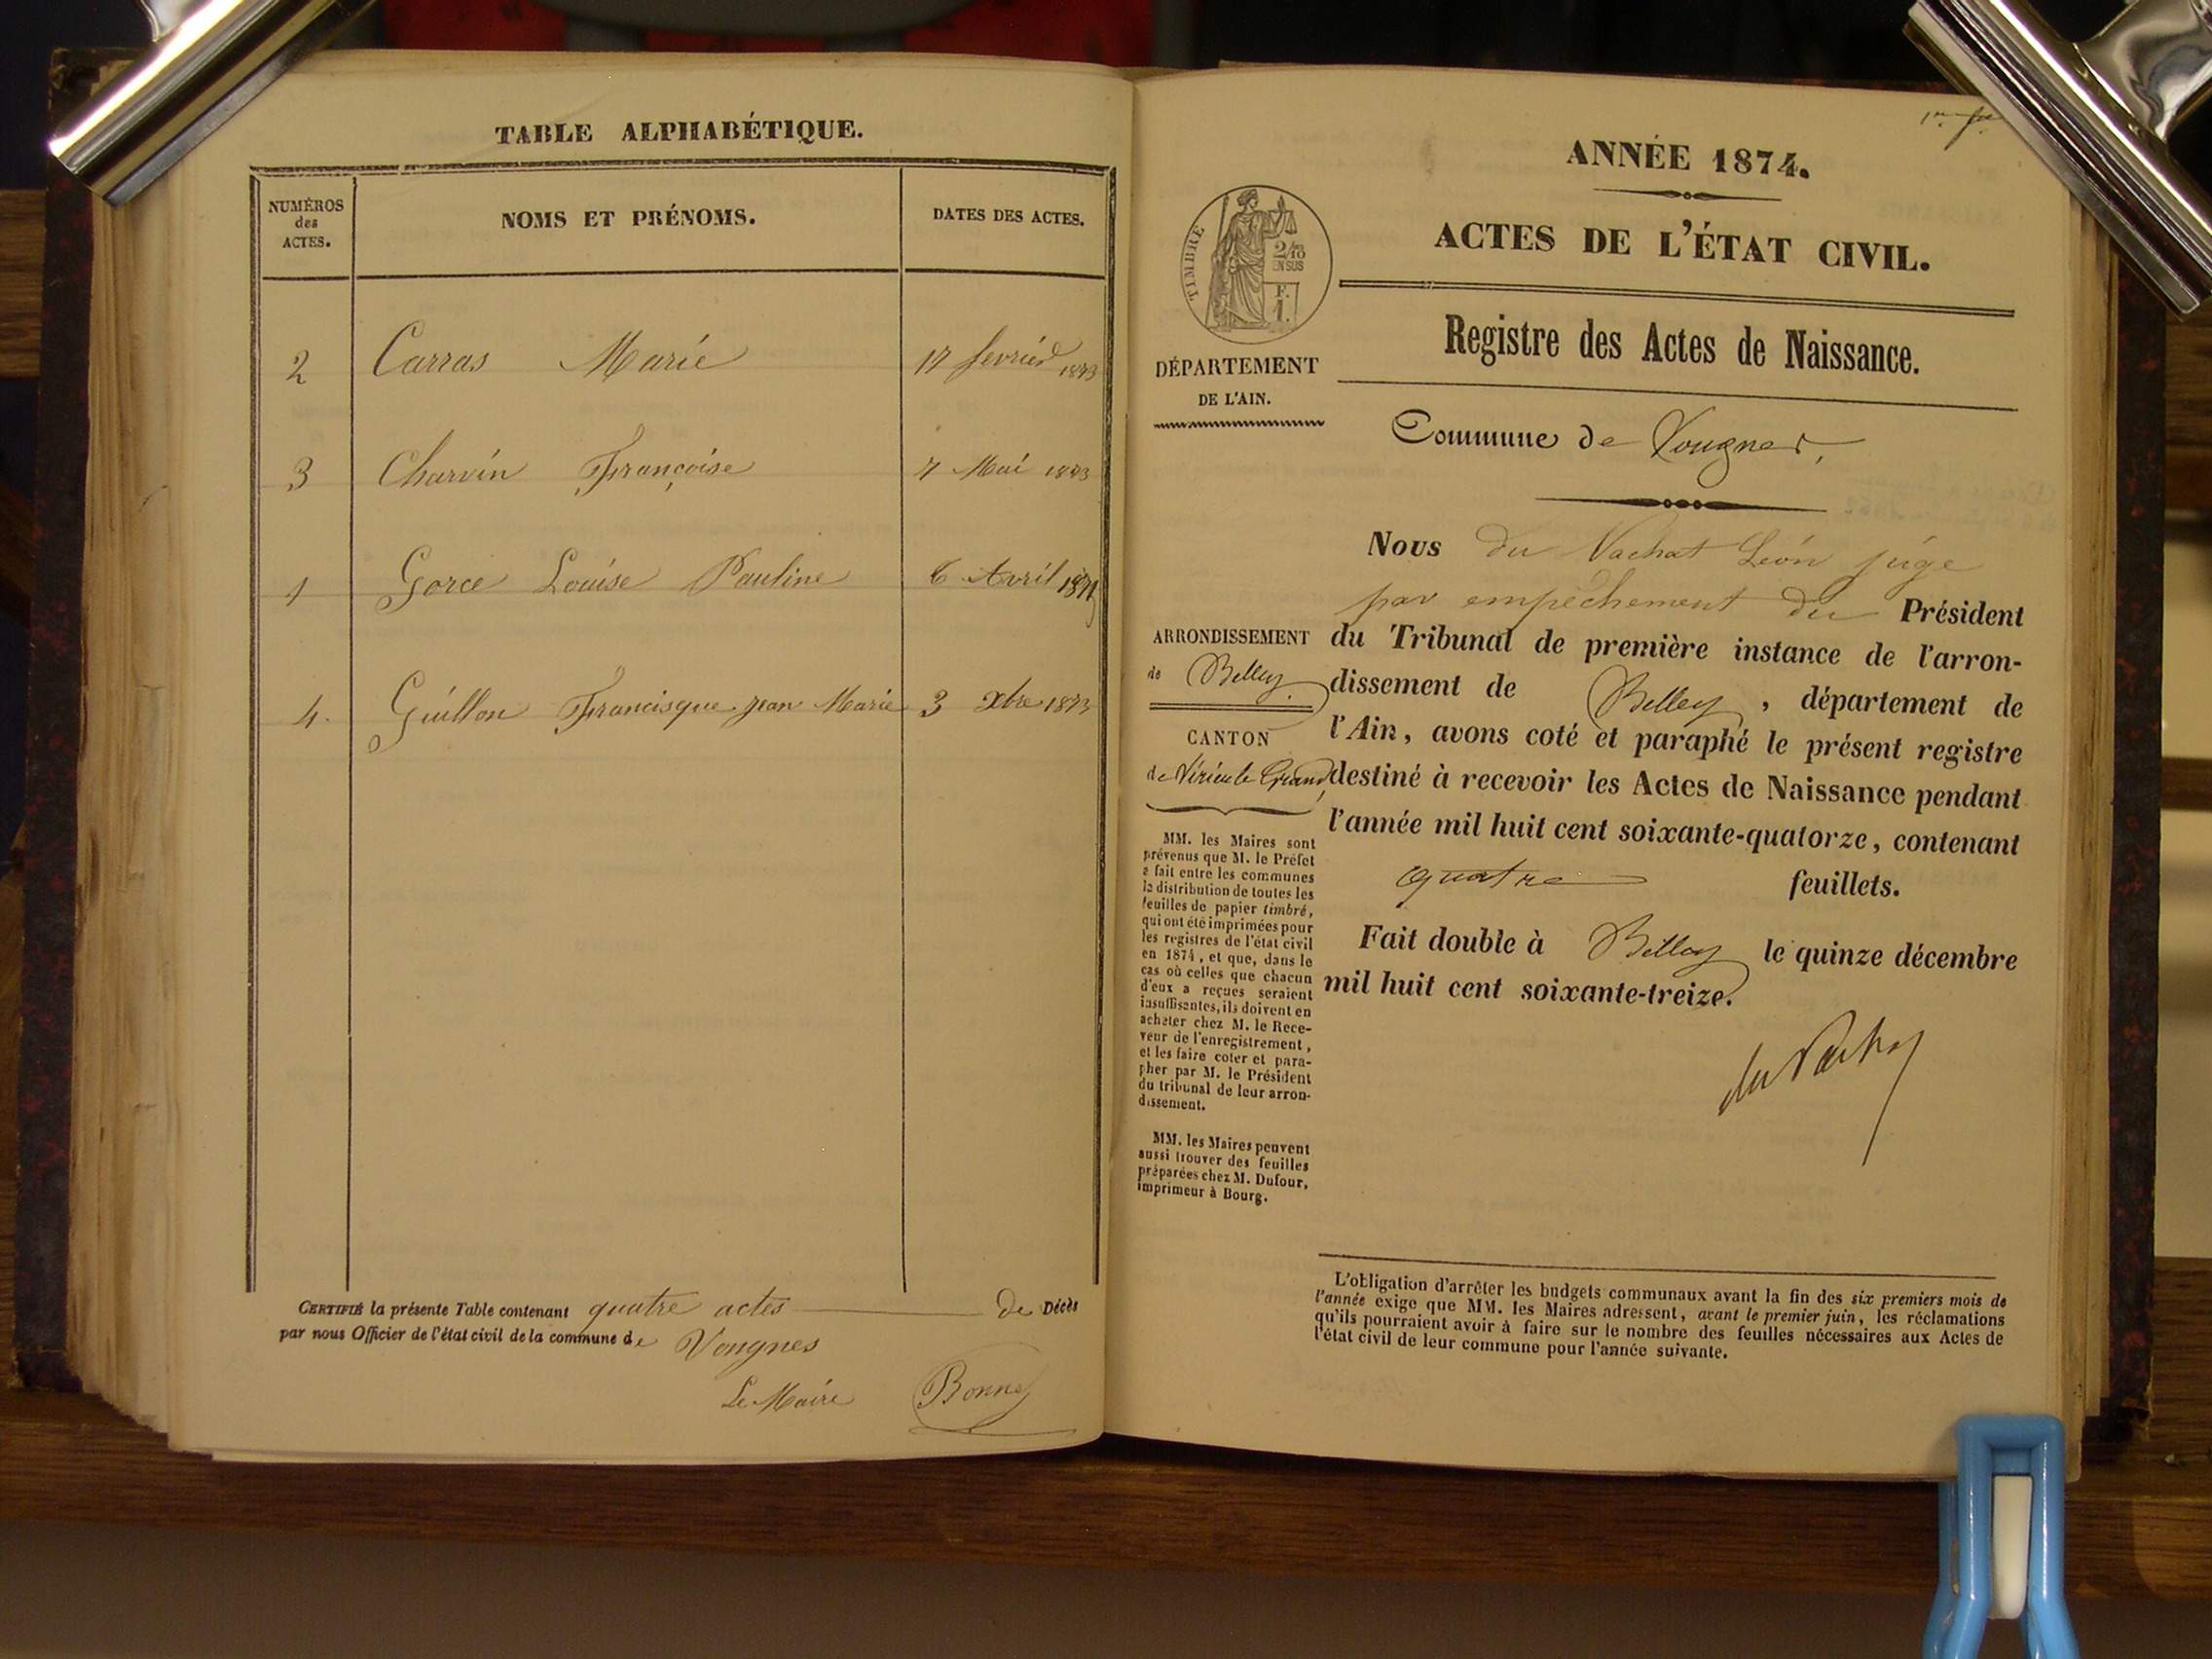 TABLE ALPHABÉTIQUE.
NUMÉROS
des
ACTES.
NOMS ET PRÉNOMS.
DATES DES ACTES.
2 Carras Marie 17 fevrier 1873
3 Charvin Françoise 7 Mai 1873
1 Gorce Louise Pauline 6 Avril
4. Guillon Francisque jean Marie 3 xbre 1873
CERTIFIÉ la présente Table contenant quatre actes de Décès
par nous Officier de l'état civil de la commune de Vongnes
Le Maire Bonne
ANNÉE 1874.
ACTES DE L'ÉTAT CIVIL.
TIMBRE
2/10
EN SUS
F.
1.
Registre des Actes de Naissance.
DÉPARTEMENT
DE L'AIN.
Commune de Vongnes,
Nous du Vachat Léon juge
par empêchement du Président
du Tribunal de première instance de l'arron-
dissement de Belley, département de
l'Ain, avons coté et paraphé le présent registre
destiné à recevoir les Actes de Naissance pendant
l'année mil huit cent soixante-quatorze, contenant
quatre feuillets.
Fait double à Belley le quinze décembre
mil huit cent soixante-treize.
du Vachat
ARRONDISSEMENT
de Belley
CANTON
de Virieu le Grand,
MM. les Maires sont
prévenus que M. le Préfet
a fait entre les communes
la distribution de toutes les
feuilles de papier timbré,
qui ont été imprimées pour
les registres de l'état civil
en 1874, et que, dans le
cas où celles que chacun
d'eux a reçues seraient
insuffisantes, ils doivent en
acheter chez M. le Rece-
veur de l'enregistrement,
et les faire coter et para-
pher par M. le Président
du tribunal de leur arron-
dissement.
MM. les Maires peuvent
aussi trouver des feuilles
préparées chez M. Dufour,
imprimeur à Bourg.
L'obligation d'arrêter les budgets communaux avant la fin des six premiers mois de
l'année exige que MM. les Maires adressent, avant le premier juin, les réclamations
qu'ils pourraient avoir à faire sur le nombre des feuilles nécessaires aux Actes de
l'état civil de leur commune pour l'année suivante.